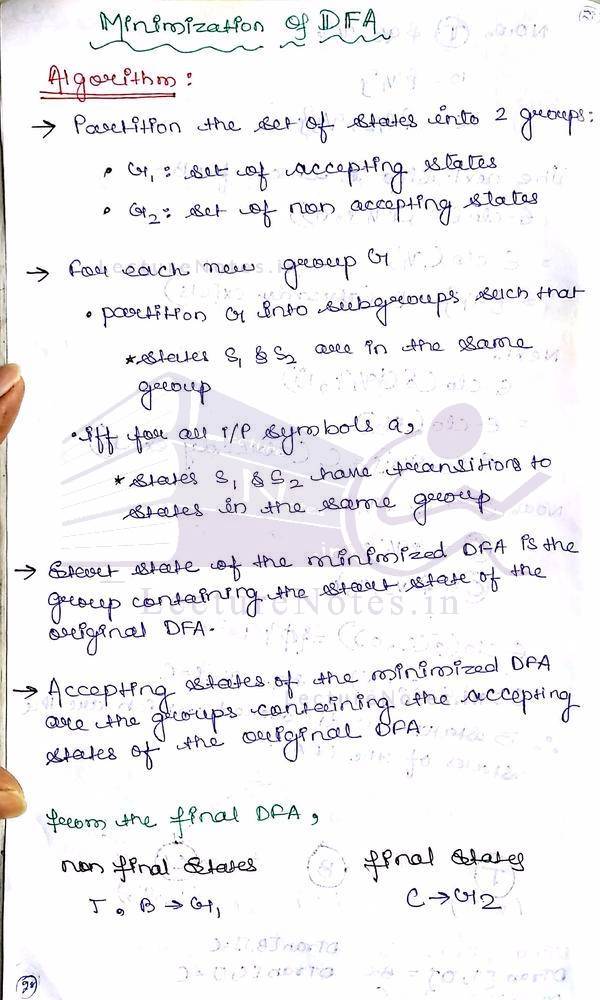 Minimization of DFA
Algorithm:
→ Partition the set of states into 2 groups:
• G1: set of accepting states
• G2: set of non accepting states
→ For each new group G
• partition G into subgroups such that
* states S1 & S2 are in the same
group
• iff for all i/p symbols a,
* states S1 & S2 have transitions to
states in the same group
→ Start state of the minimized DFA is the
group containing the start state of the
original DFA.
LectureNotes.in
→ Accepting states of the minimized DFA
are the groups containing the accepting
states of the original DFA.
from the final DFA,
non final states
final states
I, B → G1
C → G2